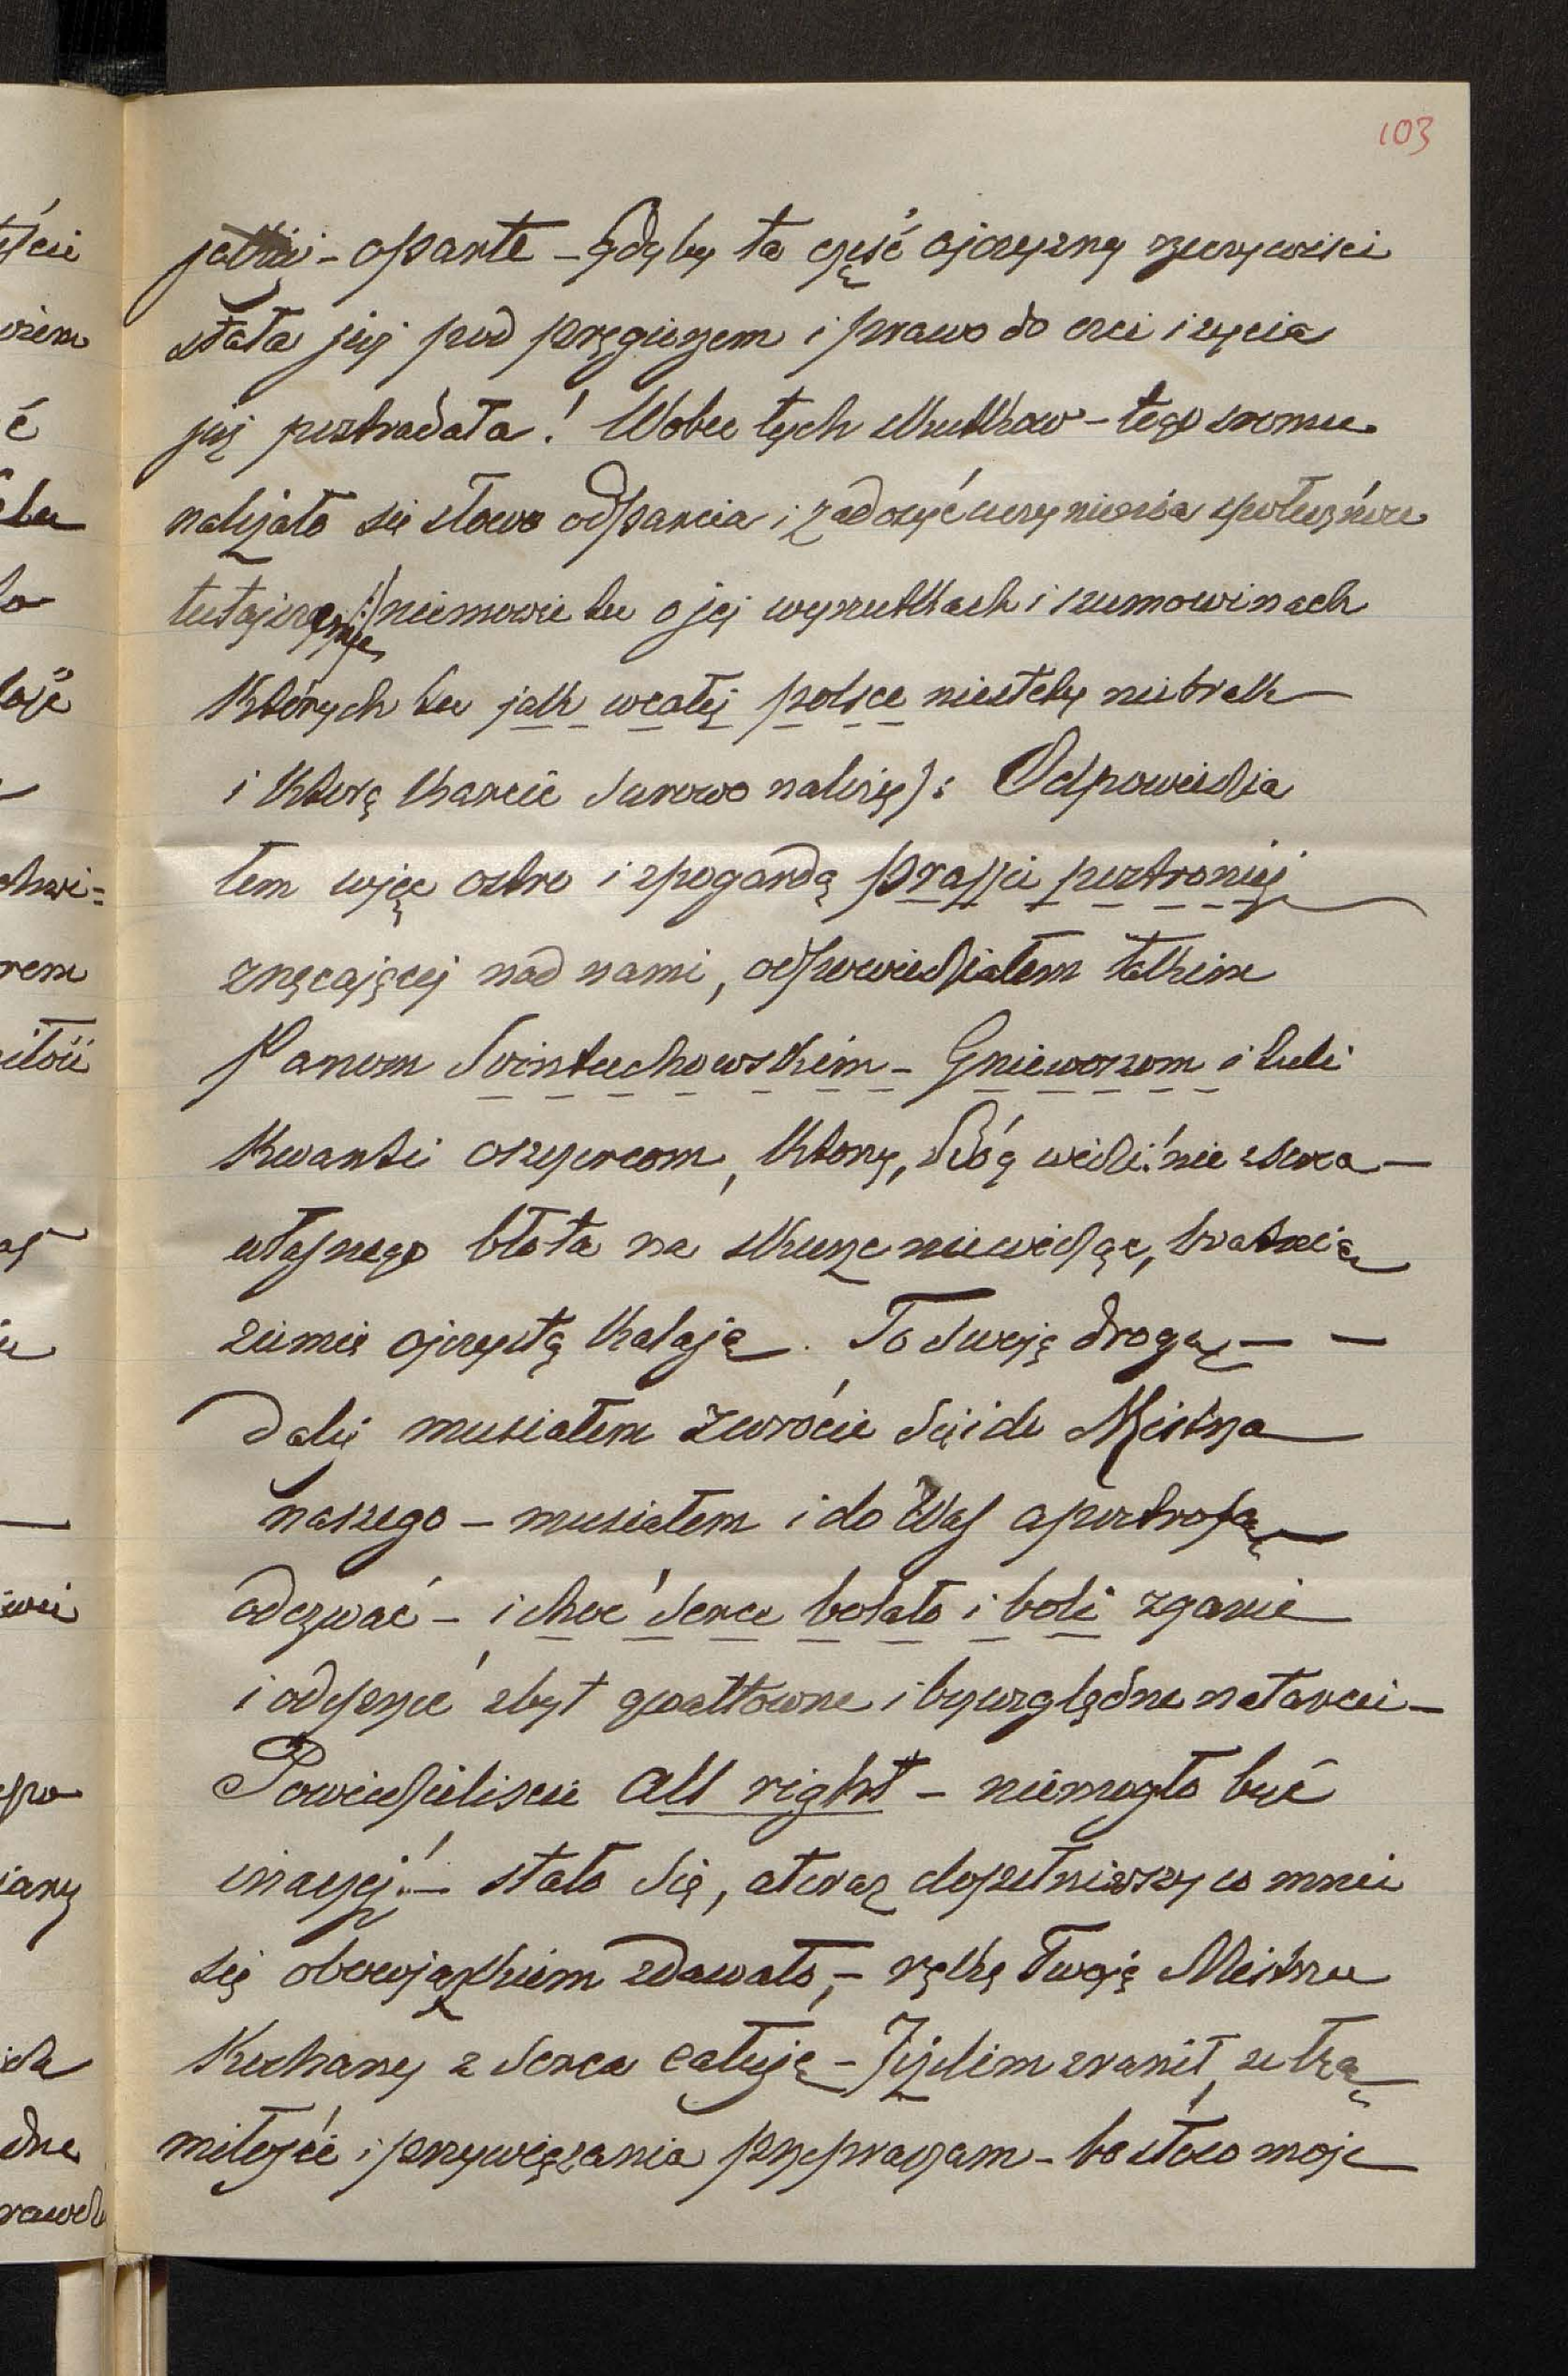 103
jakiej - oparte - Gdyby ta część ojczyzny rzeczywiści
stała już pod pręgierzem i prawo do czci i życia
już postradała! Wobec tych skutkow - tego sromu
należało się słowo odparcia i zadosyćuczynienia społeczeństwu
tutejszemu /: niemowie tu o jej wyrzutkach i szumowinach
Których tu jak wcałej polsce niestety niebrak —
i którą karcić surowo należy): Odpowiedzia
łem więc ostro i zpogardą prassie postronnej
znęcającej nad nami, odpowiedziałem takim
Panom Świętuchowskim - Gniewoszom i tuti
Kwanti oszczercom, którzy, Bóg widzi! nie zserca —
własnego błota na skurze niewidząc, bratnią
ziemię ojczystą kalają. To swoją drogą — —
Dalej musiałem zwrócić się i do Mistrza
naszego - musiałem i do Was apostrofą
odezwać - i choć serce bolało i boli zganić
i odeprzeć zbyt gwałtowne i bezwzględne natarcie —
Powiedzieliscie All right - niemogło być
inaczej! — stało się, a teraz dopełniwszy co mnie
się obowiązkiem zdawało, - rękę Twoję Mistrzu
Kochany z serca całuję - Jeżelim zranił, ze łzą
miłości i przywiązania przepraszam - bo słowo moje